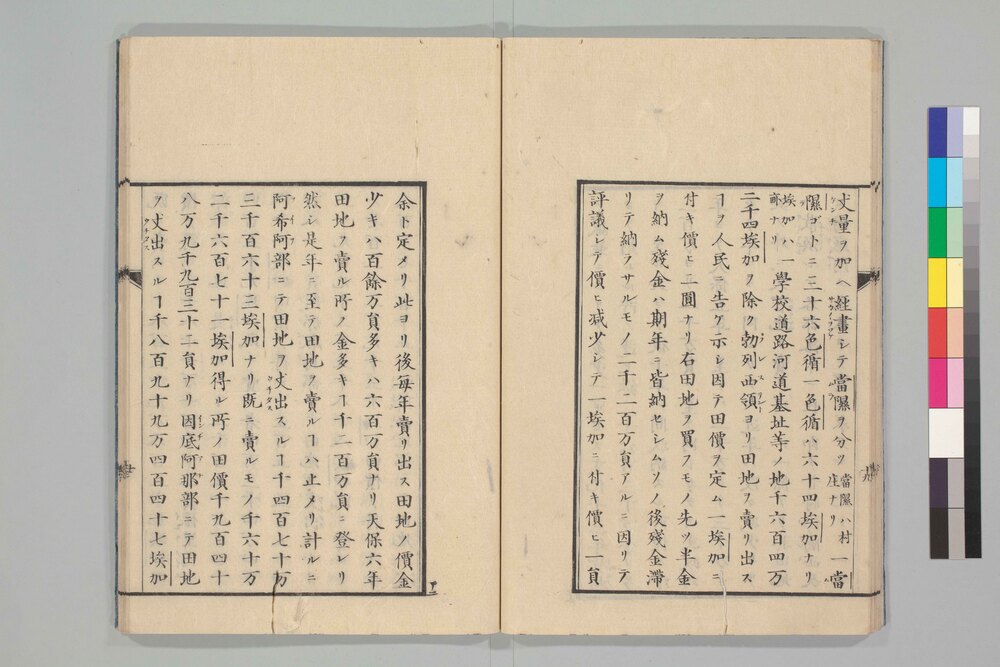 丈量ヲ加ヘ經畫シテ當隰ヲ分ツ當隰ハ村庄ナリ一當
隰ゴトニ三十六色循一色循ハ六十四埃加ナリ
埃加ハ一畝ナリ學校道路河道基址等ノ地千六百四万
二千四埃加ヲ除ク勃列西領ヨリ田地ヲ賣リ出ス
ヿヲ人民ニ告ケ示シ因テ田價ヲ定ム一埃加ニ
付キ價ヒ二圓ナリ右田地ヲ買フモノ先ツ半金
ヲ納ム殘金ハ期年ニ皆納セシムソノ後殘金滯
リテ納ヲサルモノ二千二百万員アルニ因リテ
評議シテ價ヒ減少シテ一埃加ニ付キ價ヒ一員
余ト定メリ此ヨリ後每年賣リ出ス田地ノ價金
少キハ百餘万員多キハ六百万員ナリ天保六年
田地ヲ賣ル所ノ金多キヿ千二百万員ニ登レリ
然シ是年ニ至テ田地ヲ賣ルヿハ止メリ計ルニ
阿希阿部ニテ田地ヲ丈出スルヿ千四百七十万
三千百六十三埃加ナリ既ニ賣ルモノ千六十万
二千六百七十一埃加得ル所ノ田價千九百四十
八万九千九百三十二員ナリ因底阿那部ニテ田地
ヲ丈出スルヿ千八百九十九万四百四十七埃加